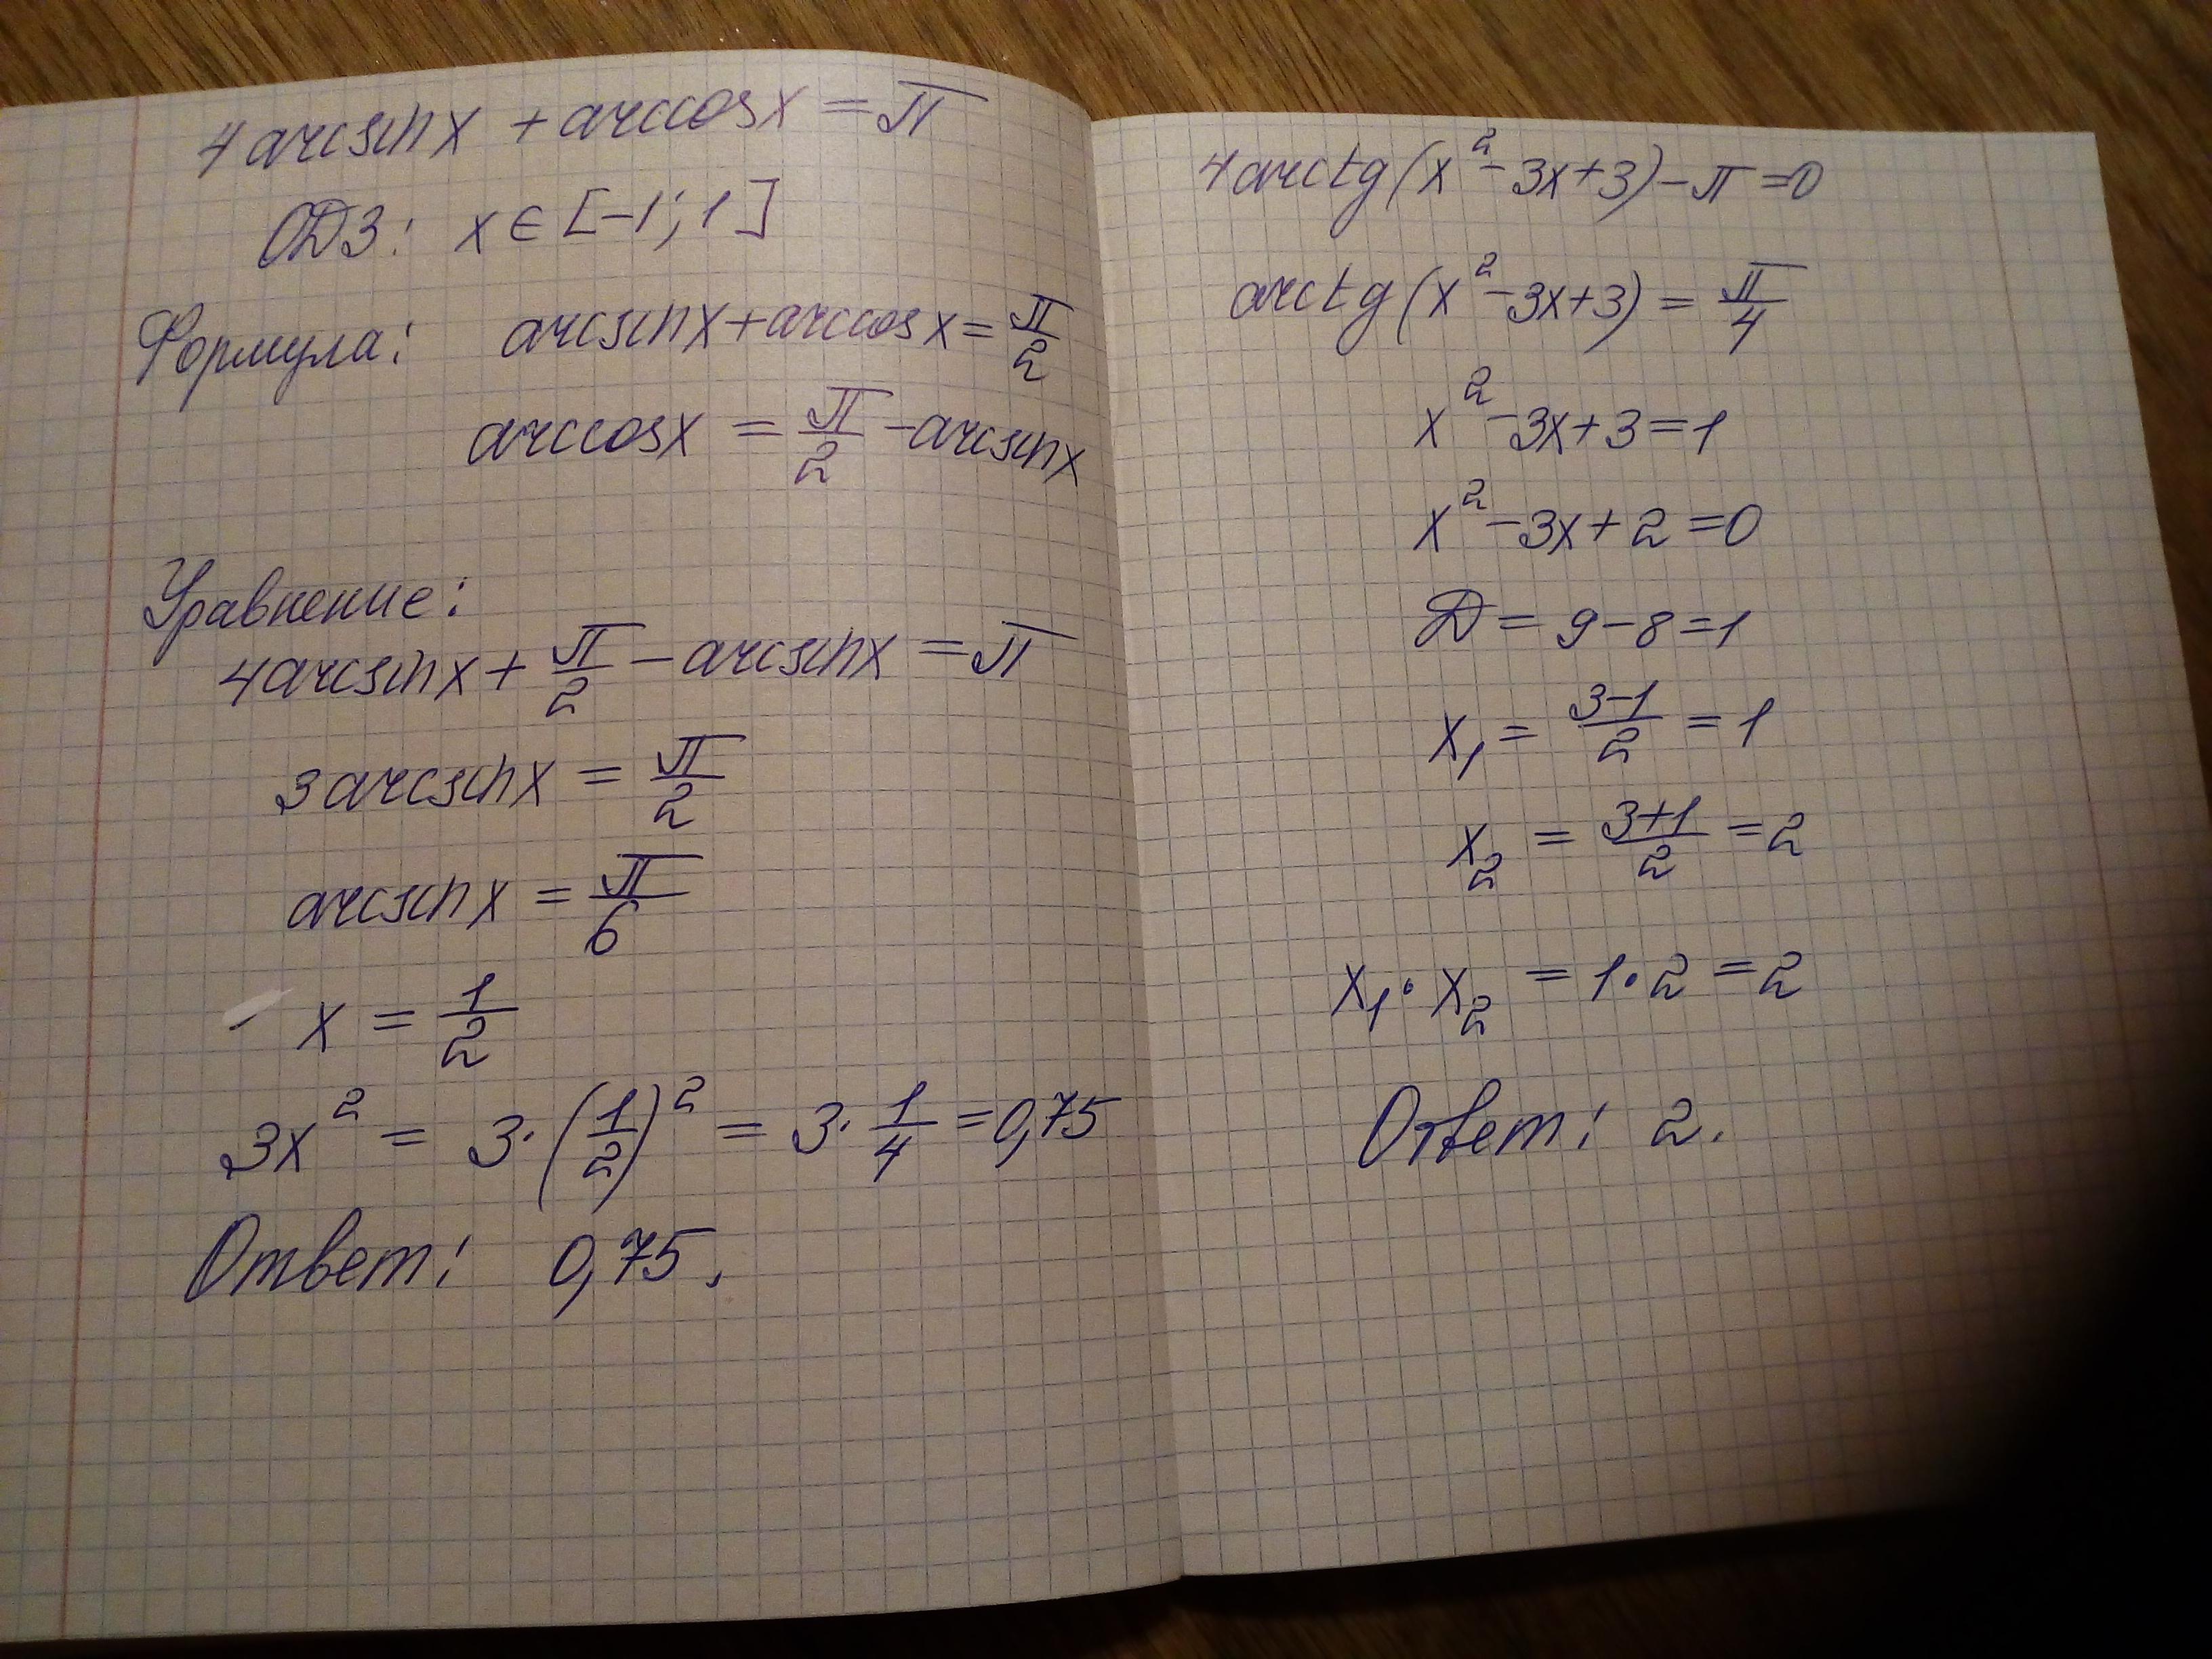 4arcsinx + arccosx = π
ОДЗ: x ∈ [-1; 1]
Формула: arcsinx + arccosx = π/2
arccosx = π/2 - arcsinx
Уравнение:
4arcsinx + π/2 - arcsinx = π
3arcsinx = π/2
arcsinx = π/6
x = 1/2
3x² = 3·(1/2)² = 3·1/4 = 0,75
Ответ: 0,75.
4arctg(x² - 3x + 3) - π = 0
arctg(x² - 3x + 3) = π/4
x² - 3x + 3 = 1
x² - 3x + 2 = 0
D = 9 - 8 = 1
x₁ = (3-1)/2 = 1
x₂ = (3+1)/2 = 2
x₁ · x₂ = 1·2 = 2
Ответ: 2.